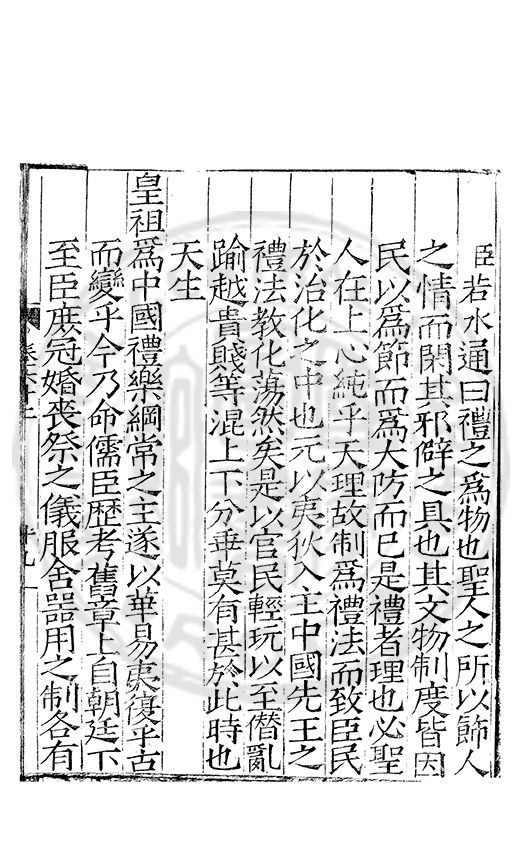 臣若水通曰禮之爲物也聖人之所以飾人
之情而閑其邪僻之具也其文物制度皆因
民以爲節而爲大防而巳是禮者理也必聖
人在上心純乎天理故制爲禮法而致臣民
於治化之中也元以夷狄入主中國先王之
禮法教化蕩然矣是以官民輕玩以至僭亂
踰越貴賤等混上下分乖莫有甚於此時也
天生
皇祖爲中國禮樂綱常之主遂以華易夷復乎古
而變乎今乃命儒臣歷考舊章上自朝廷下
至臣庶冠婚喪祭之儀服舍器用之制各有